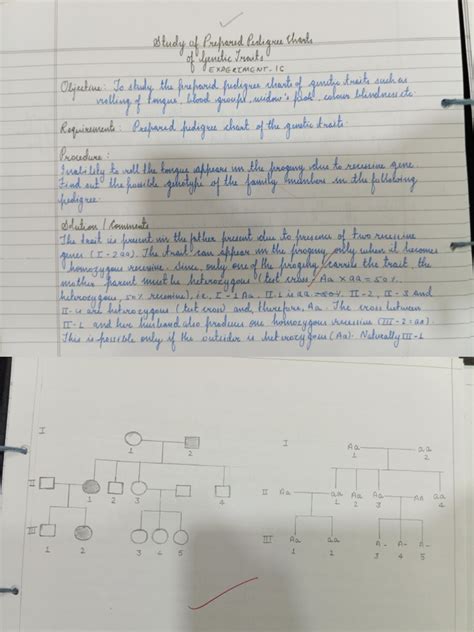 Study of Prepared Pedigree Charts
of Genetic Traits
EXPERIMENT-16
Objective: To study the prepared pedigree charts of genetic traits such as
rolling of tongue, blood groups, widow's peak, colour blindness etc
Requirements: Prepared pedigree chart of the genetic traits.
Procedure:
Inability to roll the tongue appears in the progeny due to recessive gene.
Find out the possible genotype of the family members in the following
pedigree.
Solution / Comments
The trait is present in the father present due to presence of two recessive
genes (I-2 aa). The trait can appear in the progeny only when it becomes
homozygous recessive. Since only one of the progeny carries the trait, the
mother parent must be heterozygous (test cross, Aa x aa = 50%
heterozygous, 50% recessive), i.e. I-1 Aa. II-1 is aa II-2, II-3 and
II-4 are heterozygous (test cross) and, therefore, Aa. The cross between
II-1 and her husband also produces one homozygous recessive (III-2 = aa).
This is possible only if the outsider is heterozygous (Aa). Naturally III-1
I
1 2
II
1 2 3 4
III
1 2 3 4 5
I Aa aa
1 2
II Aa aa Aa Aa AA aa
1 2 3 4
III Aa aa A- A- A-
1 2 3 4 5